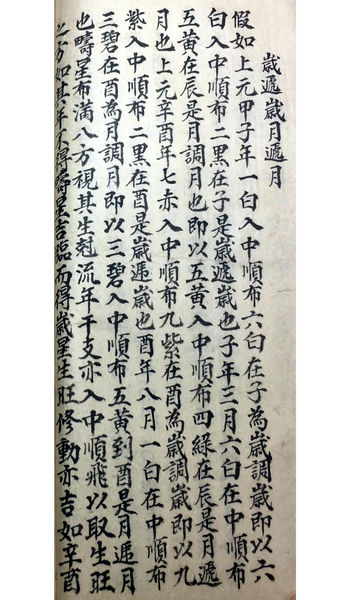 歲遞歲月遞月
假如上元甲子年一白入中順布六白在子為歲調歲即以六
白入中順布二黑在子是歲遞歲也子年三月六白在中順布
五黃在辰是月調月也即以五黃入中順布四綠在辰是月遞
月也上元辛酉年七赤入中順布九紫在酉為歲調歲即以九
紫入中順布二黑在酉是歲遞歲也酉年八月一白在中順布
三碧在酉為月調月即以三碧入中順布五黃到酉是月遞月
也疇星布滿八方視其生尅流年干支亦入中順飛以取生旺
之方如其年不得疇星吉臨而得歲星生旺修動亦吉如辛酉